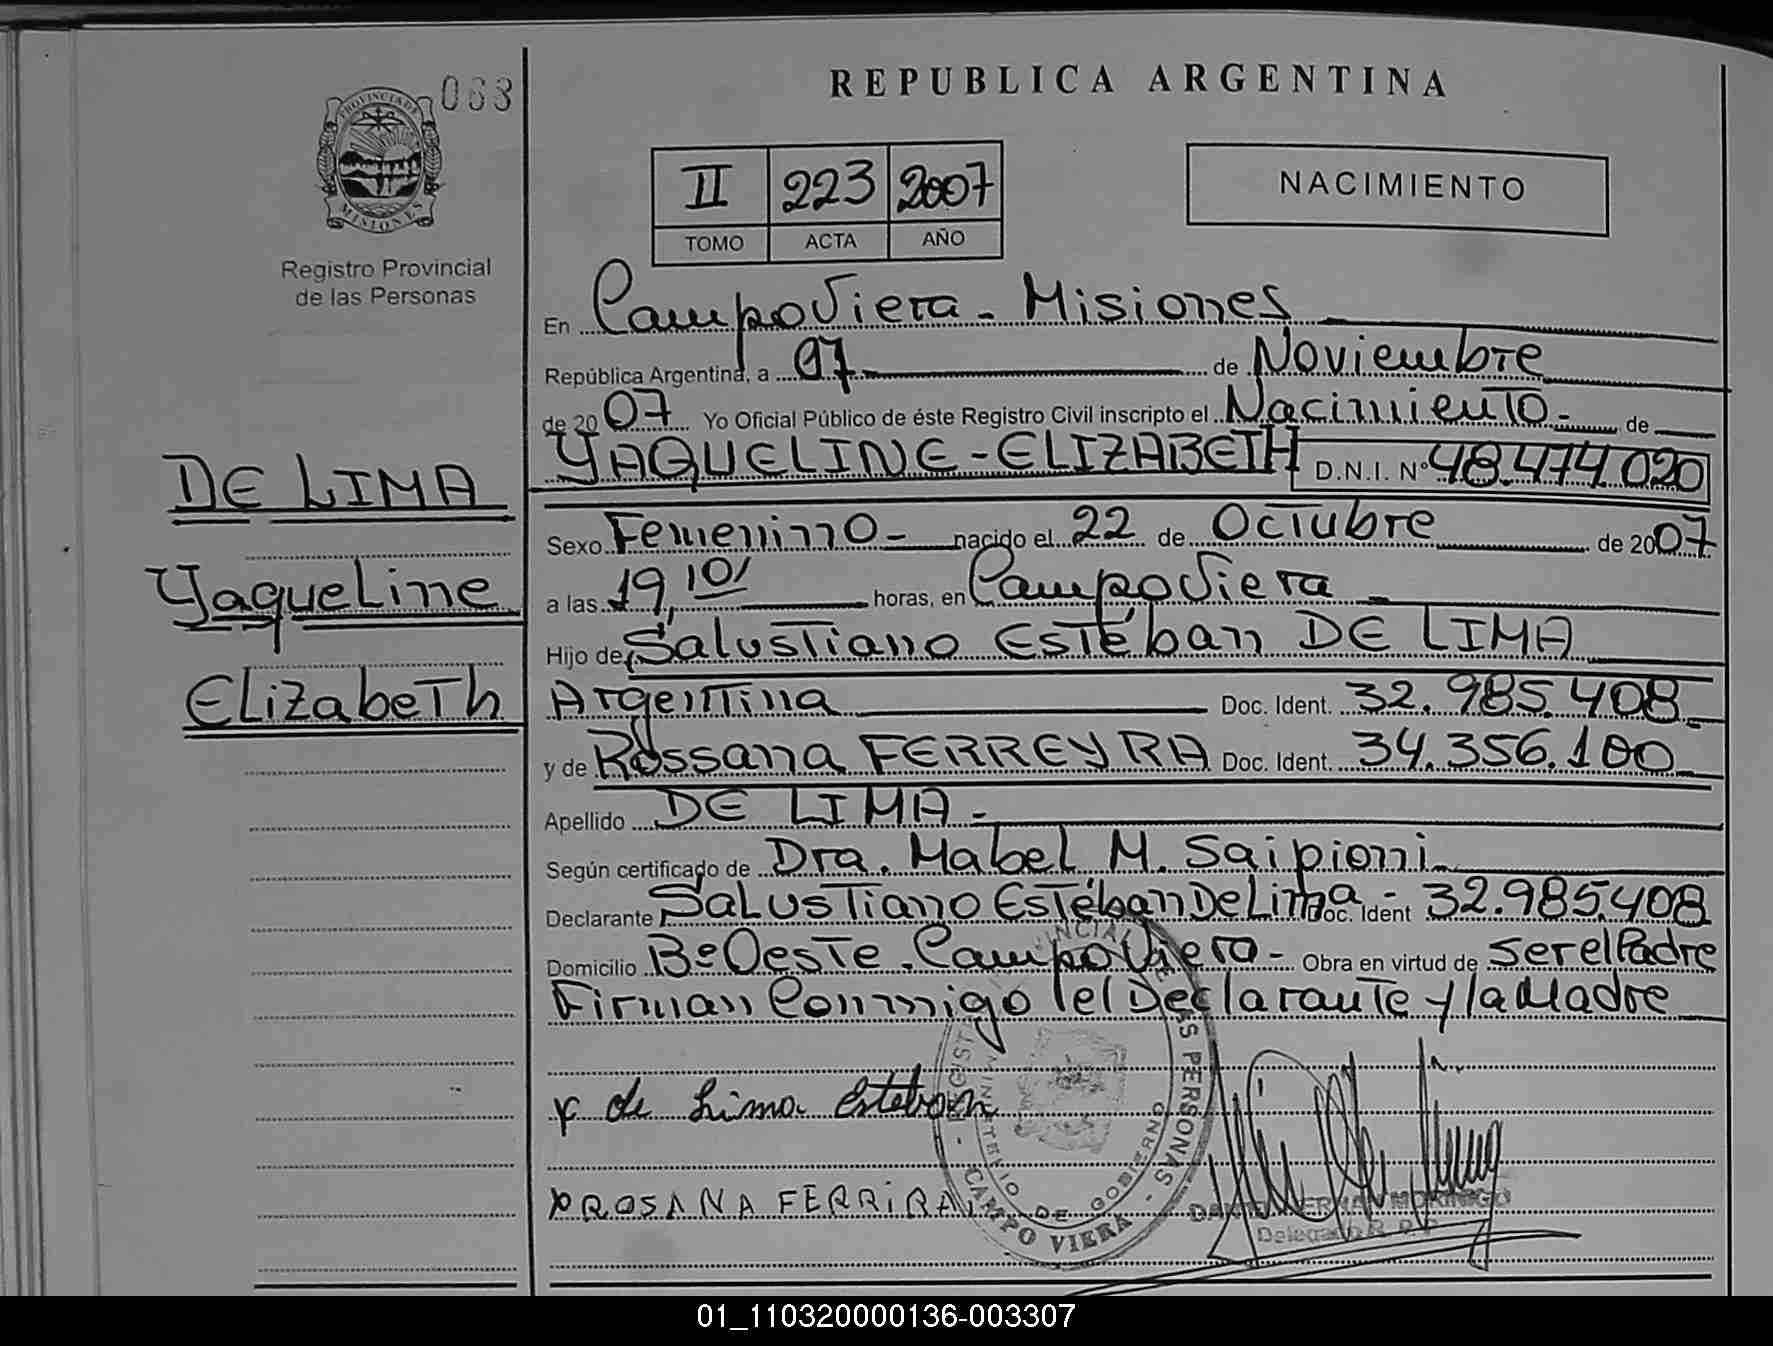 068
PROVINCIA DE
MISIONES
Registro Provincial
de las Personas
DE LIMA
Yaqueline
Elizabeth
REPUBLICA ARGENTINA
II 223 2007
TOMO ACTA AÑO
NACIMIENTO
En Campo Viera - Misiones
República Argentina, a 07 de Noviembre
de 2007 Yo Oficial Público de éste Registro Civil inscripto el Nacimiento - de
YAQUELINE - ELIZABETH D.N.I. Nº 48.474.020
Sexo Femenino - nacido el 22 de Octubre de 2007
a las 19,10' horas, en Campo Viera -
Hijo de Salustiano Estéban DE LIMA
Argentina Doc. Ident. 32.985.408 -
y de Rossana FERREYRA Doc. Ident. 34.356.100
Apellido DE LIMA -
Según certificado de Dra. Mabel M. Saipioni
Declarante Salustiano Estéban De Lima - Doc. Ident 32.985.408
Domicilio Bº Oeste. Campo Viera - Obra en virtud de ser el Padre
Firman Conmigo el Declarante y la Madre
x de Lima Esteban
x ROSANA FERRiRA
MINISTERIO DE GOBIERNO
- CAMPO VIERA -
Delegado R. P. P.
01_110320000136-003307